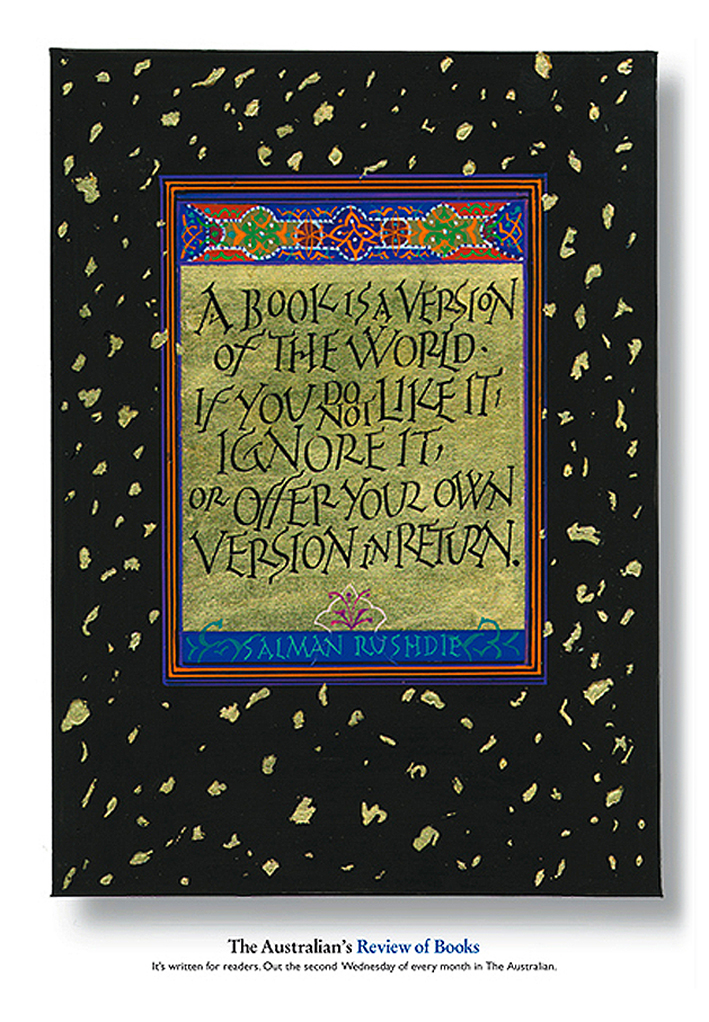 A BOOK IS A VERSION
OF THE WORLD.
IF YOU DO NOT LIKE IT,
IGNORE IT,
OR OFFER YOUR OWN
VERSION IN RETURN.
SALMAN RUSHDIE
The Australian's Review of Books
It's written for readers. Out the second Wednesday of every month in The Australian.